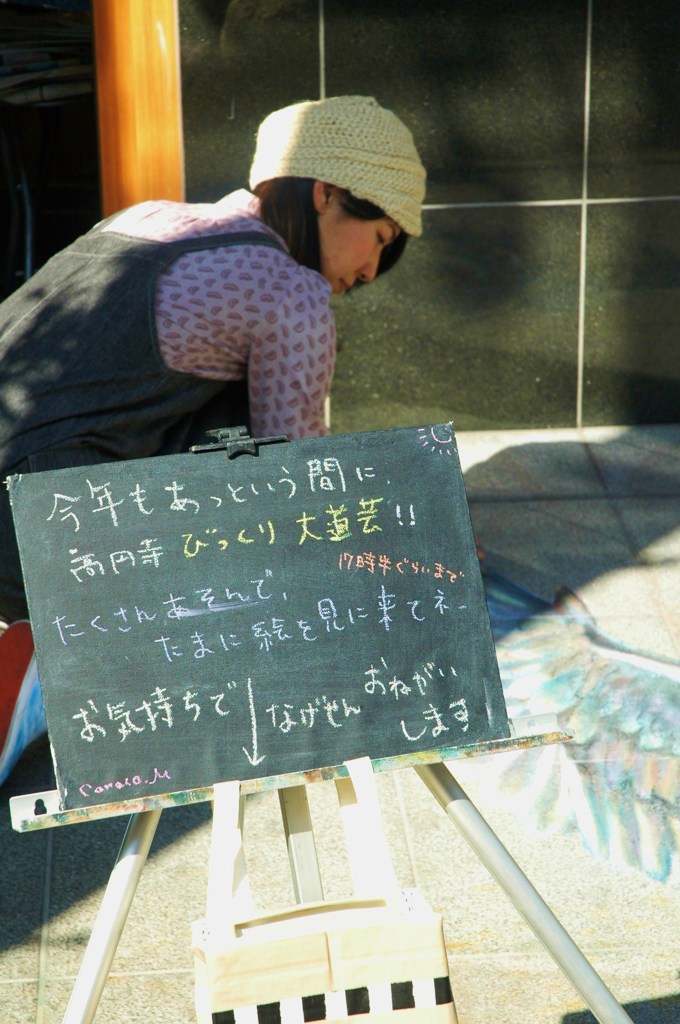 今年もあっという間に、
高円寺 びっくり 大道芸!!
17時半ぐらいまで
たくさんあそんで、
たまに絵を見に来てネ
お気持ちで↓なげせん おねがい
します